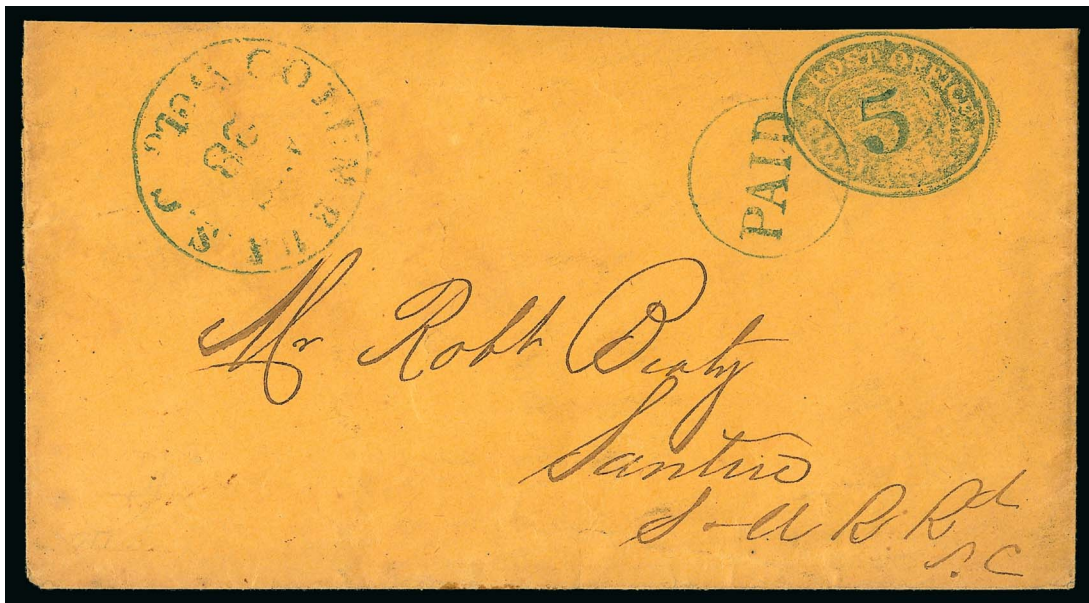 COLUMBIA S.C.
PAID
POST OFFICE
5
Mr Robt Beaty
Santuc
S & U R Rd
S.C